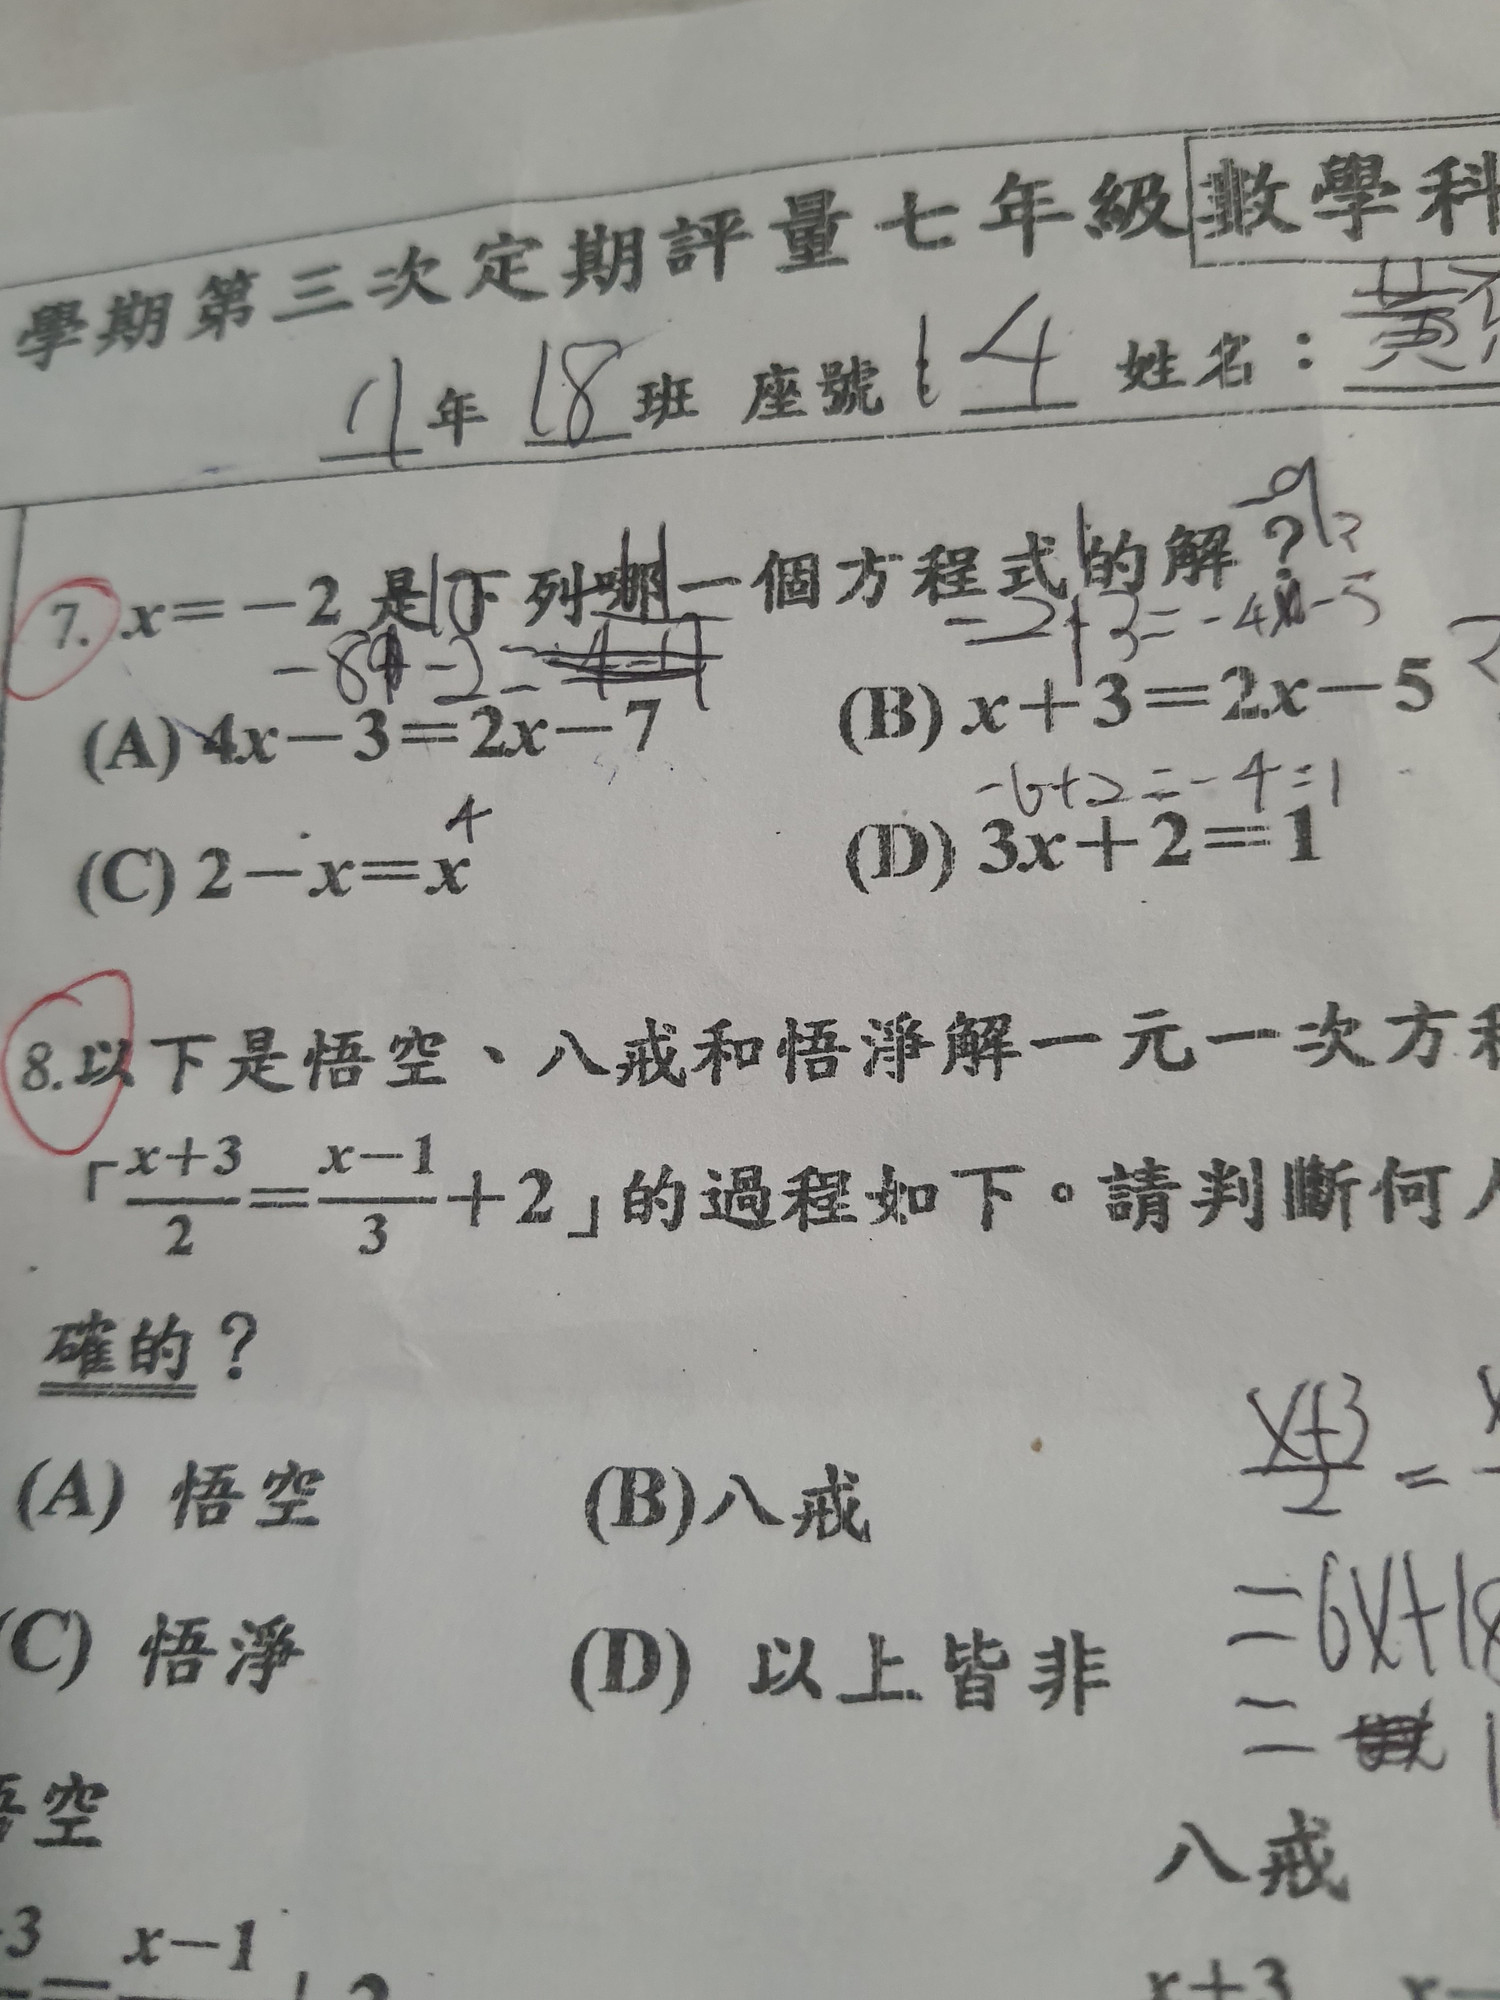 學期第三次定期評量七年級數學科
7年 18班 座號:14 姓名：黃
7. x=-2 是下列哪一個方程式的解？
-2+3=-4-5
(A) 4x-3=2x-7 (B) x+3=2x-5
-6+2=-4=1
4
(C) 2-x=x (D) 3x+2=1
8.以下是悟空、八戒和悟淨解一元一次方程
「\frac{x+3}{2}=\frac{x-1}{3}+2」的過程如下。請判斷何人
確的？
(A) 悟空 (B)八戒
\frac{x+3}{2}=
(C) 悟淨 (D) 以上皆非
=6x+18
=
悟空 八戒
3 x-1 x+3 x-
= +2